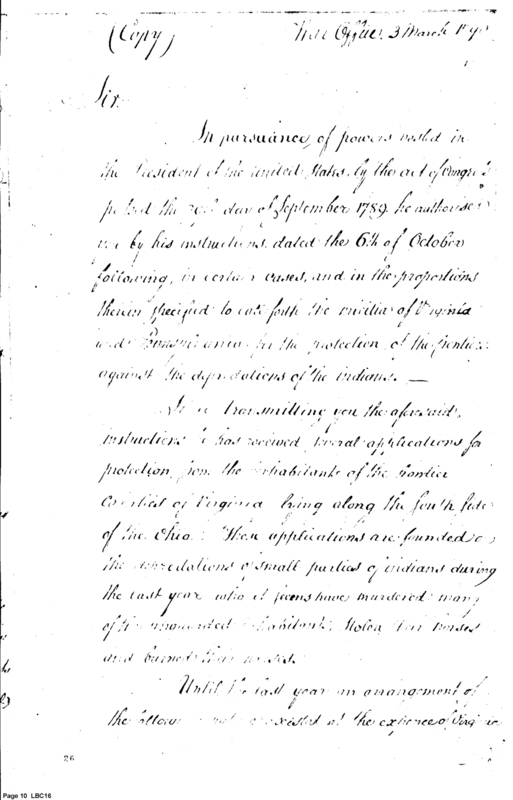 (Copy)
War Office, 3 March 179
Sir
In pursuance of powers vested in
the President of the United States, by the act of Congress
passed the day of September 1789 he authorised
you by his instructions dated the 6th of October
following, in certain cases, and in the proportions
therein specified to call forth the militia of Virginia
and Pennsylvania for the protection of the frontiers
against the depredations of the indians. —
transmitting you the aforesaid
instructions he has received several applications for
protection, from the inhabitants of the frontier
Counties of Virginia lying along the South side
of the Ohio. These applications are founded on
the depredations of small parties of indians during
the last year who it seems have murdered many
of the unguarded inhabitants, stolen their horses
and burned their houses.
Until the last year an arrangement of
the existed at the expence of Virginia
26
Page 10 LBC16